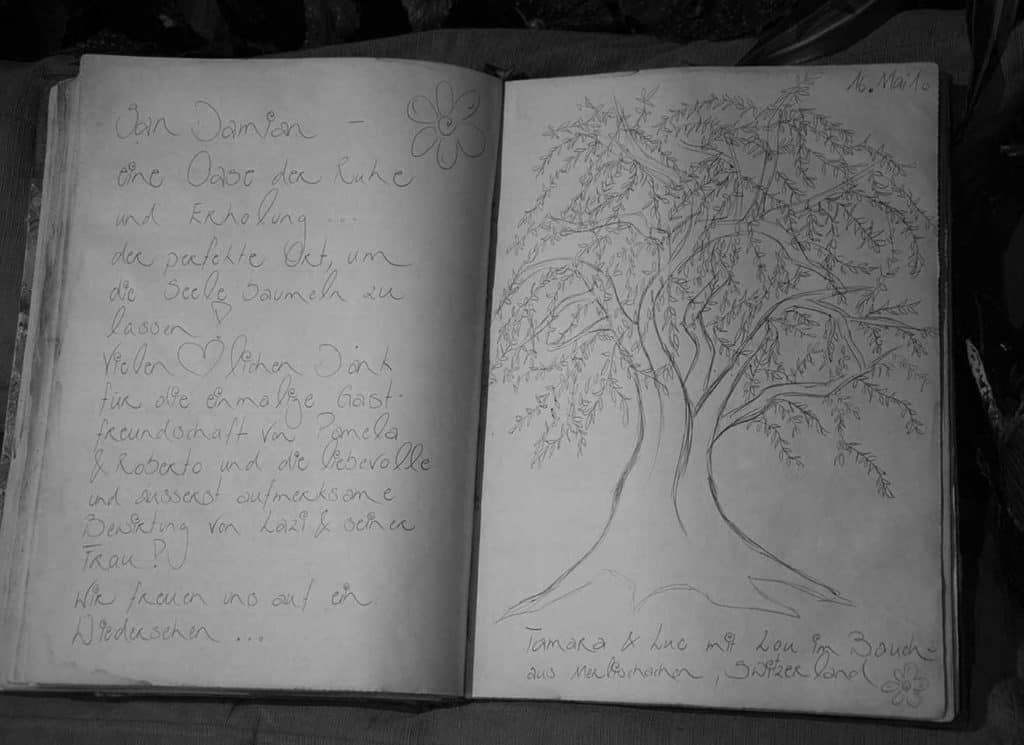 San Damian -
eine Oase der Ruhe
und Erholung ...
der perfekte Ort, um
die Seele baumeln zu
lassen!
Vielen ♡lichen Dank
für die einmalige Gast-
freundschaft von Pamela
& Roberto und die liebevolle
und äusserst aufmerksame
Bewirtung von Lazi & seiner
Frau!
Wir freuen uns auf ein
Wiedersehen ...
16. Mai 10
Tamara & Luc mit Lou im Bauch
aus Merlischachen, Switzerland